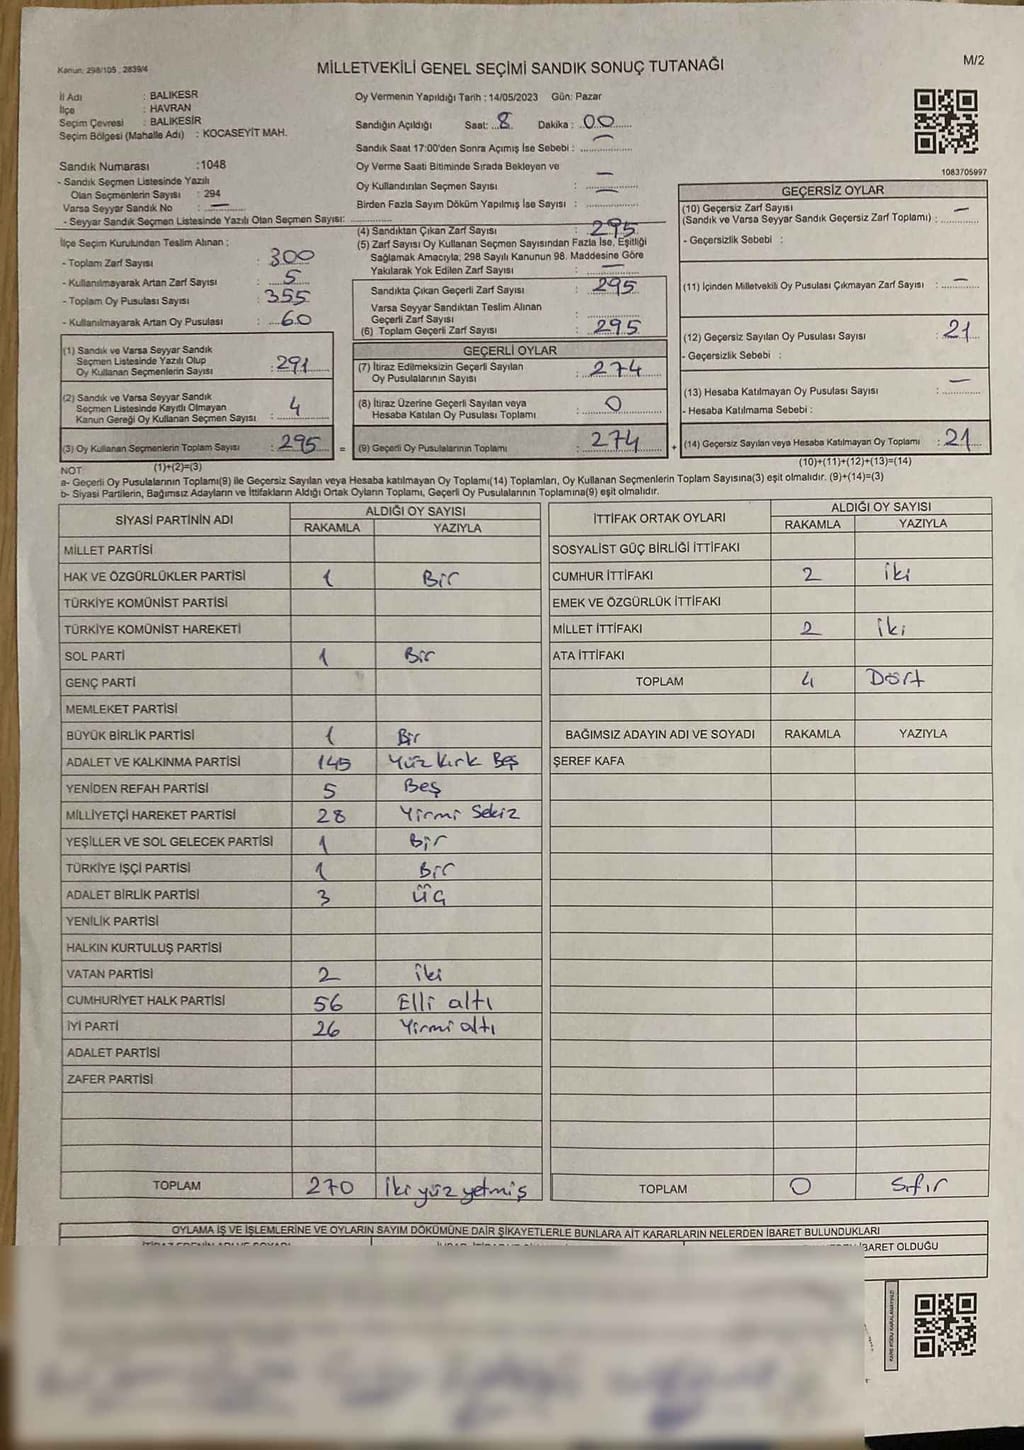 Kanun: 298/105 ; 2839/4
MİLLETVEKİLİ GENEL SEÇİMİ SANDIK SONUÇ TUTANAĞI
M/2
İl Adı : BALIKESR
İlçe : HAVRAN
Seçim Çevresi : BALIKESİR
Seçim Bölgesi (Mahalle Adı) : KOCASEYİT MAH.
Oy Vermenin Yapıldığı Tarih : 14/05/2023 Gün: Pazar
Sandığın Açıldığı Saat: 8 Dakika : 00
Sandık Saat 17:00'den Sonra Açımış İse Sebebi : —
Oy Verme Saati Bitiminde Sırada Bekleyen ve
Oy Kullandırılan Seçmen Sayısı : —
Birden Fazla Sayım Döküm Yapılmış İse Sayısı : —
1083705997
Sandık Numarası :1048
- Sandık Seçmen Listesinde Yazılı
Olan Seçmenlerin Sayısı : 294
Varsa Seyyar Sandık No : —
- Seyyar Sandık Seçmen Listesinde Yazılı Olan Seçmen Sayısı:
İlçe Seçim Kurulundan Teslim Alınan ;
- Toplam Zarf Sayısı : 300
- Kullanılmayarak Artan Zarf Sayısı : 5
- Toplam Oy Pusulası Sayısı : 355
- Kullanılmayarak Artan Oy Pusulası : 60
(1) Sandık ve Varsa Seyyar Sandık
Seçmen Listesinde Yazılı Olup
Oy Kullanan Seçmenlerin Sayısı : 291
(2) Sandık ve Varsa Seyyar Sandık
Seçmen Listesinde Kayıtlı Olmayan
Kanun Gereği Oy Kullanan Seçmen Sayısı : 4
(3) Oy Kullanan Seçmenlerin Toplam Sayısı : 295 =
(1)+(2)=(3)
(4) Sandıktan Çıkan Zarf Sayısı : 295
(5) Zarf Sayısı Oy Kullanan Seçmen Sayısından Fazla İse, Eşitliği
Sağlamak Amacıyla; 298 Sayılı Kanunun 98. Maddesine Göre
Yakılarak Yok Edilen Zarf Sayısı : —
Sandıkta Çıkan Geçerli Zarf Sayısı : 295
Varsa Seyyar Sandıktan Teslim Alınan
Geçerli Zarf Sayısı :
(6) Toplam Geçerli Zarf Sayısı : 295
GEÇERLİ OYLAR
(7) İtiraz Edilmeksizin Geçerli Sayılan
Oy Pusulalarının Sayısı : 274
(8) İtiraz Üzerine Geçerli Sayılan veya
Hesaba Katılan Oy Pusulası Toplamı : 0
(9) Geçerli Oy Pusulalarının Toplamı : 274 +
GEÇERSİZ OYLAR
(10) Geçersiz Zarf Sayısı
(Sandık ve Varsa Seyyar Sandık Geçersiz Zarf Toplamı) : —
- Geçersizlik Sebebi :
(11) İçinden Milletvekili Oy Pusulası Çıkmayan Zarf Sayısı : —
(12) Geçersiz Sayılan Oy Pusulası Sayısı : 21
- Geçersizlik Sebebi :
(13) Hesaba Katılmayan Oy Pusulası Sayısı : —
- Hesaba Katılmama Sebebi :
(14) Geçersiz Sayılan veya Hesaba Katılmayan Oy Toplamı : 21
(10)+(11)+(12)+(13)=(14)
NOT
a- Geçerli Oy Pusulalarının Toplamı(9) ile Geçersiz Sayılan veya Hesaba katılmayan Oy Toplamı(14) Toplamları, Oy Kullanan Seçmenlerin Toplam Sayısına(3) eşit olmalıdır. (9)+(14)=(3)
b- Siyasi Partilerin, Bağımsız Adayların ve İttifakların Aldığı Ortak Oyların Toplamı, Geçerli Oy Pusulalarının Toplamına(9) eşit olmalıdır.
SİYASİ PARTİNİN ADI ALDIĞI OY SAYISI
RAKAMLA YAZIYLA
MİLLET PARTİSİ
HAK VE ÖZGÜRLÜKLER PARTİSİ 1 Bir
TÜRKİYE KOMÜNİST PARTİSİ
TÜRKİYE KOMÜNİST HAREKETİ
SOL PARTİ 1 Bir
GENÇ PARTİ
MEMLEKET PARTİSİ
BÜYÜK BİRLİK PARTİSİ 1 Bir
ADALET VE KALKINMA PARTİSİ 145 Yüz Kırk Beş
YENİDEN REFAH PARTİSİ 5 Beş
MİLLİYETÇİ HAREKET PARTİSİ 28 Yirmi Sekiz
YEŞİLLER VE SOL GELECEK PARTİSİ 1 Bir
TÜRKİYE İŞÇİ PARTİSİ 1 Bir
ADALET BİRLİK PARTİSİ 3 Üç
YENİLİK PARTİSİ
HALKIN KURTULUŞ PARTİSİ
VATAN PARTİSİ 2 iki
CUMHURİYET HALK PARTİSİ 56 Elli altı
İYİ PARTİ 26 Yirmi altı
ADALET PARTİSİ
ZAFER PARTİSİ
TOPLAM 270 İki yüz yetmiş
İTTİFAK ORTAK OYLARI ALDIĞI OY SAYISI
RAKAMLA YAZIYLA
SOSYALİST GÜÇ BİRLİĞİ İTTİFAKI
CUMHUR İTTİFAKI 2 iki
EMEK VE ÖZGÜRLÜK İTTİFAKI
MİLLET İTTİFAKI 2 iki
ATA İTTİFAKI
TOPLAM 4 Dört
BAĞIMSIZ ADAYIN ADI VE SOYADI RAKAMLA YAZIYLA
ŞEREF KAFA
TOPLAM 0 Sıfır
OYLAMA İŞ VE İŞLEMLERİNE VE OYLARIN SAYIM DÖKÜMÜNE DAİR ŞİKAYETLERLE BUNLARA AİT KARARLARIN NELERDEN İBARET BULUNDUKLARI
İBARET OLDUĞU